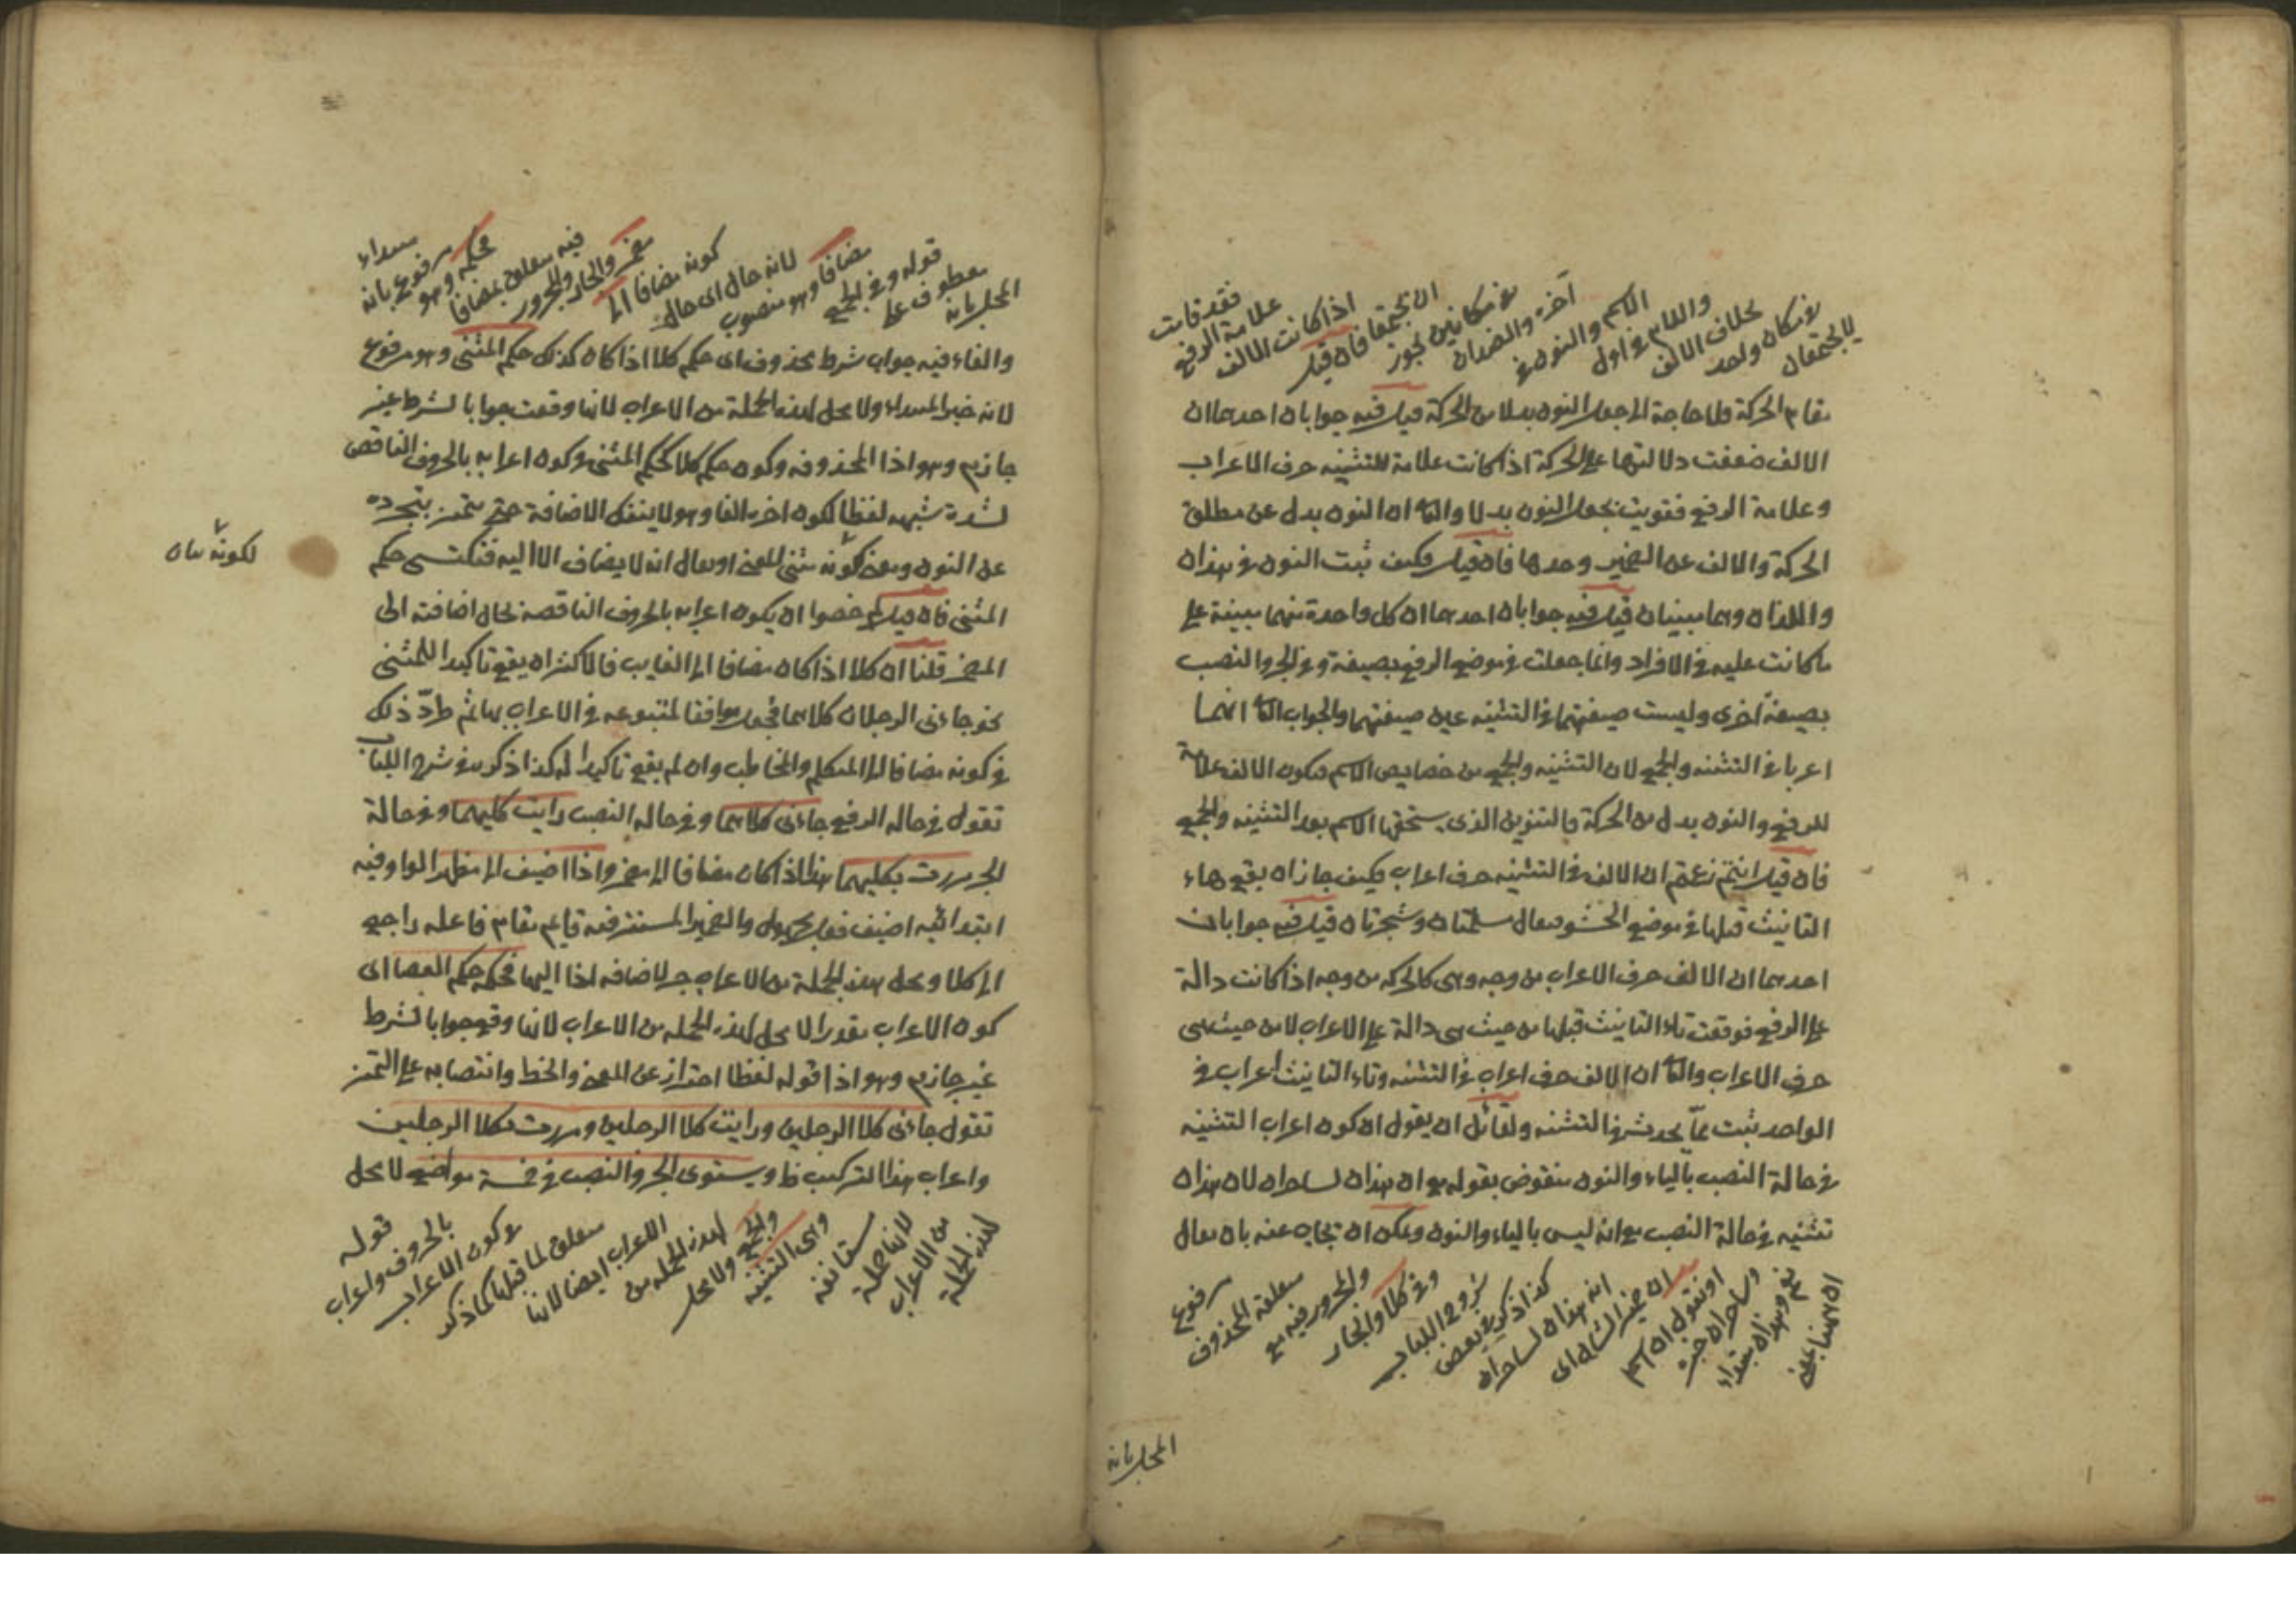 لا يجتمعان
لامكان واحد
بخلاف الالف
واللام في اول
الاسم والنون في
آخره والضدان
لامكانين يجوز
ان يجتمعا فان قيل
اذا كانت الالف
علامة الرفع
فقد قامت
مقام الحركة فلا حاجة الى جعل النون بدلا من الحركة قيل فيه جوابان احدهما ان
الالف ضعفت دلالتها على الحركة اذا كانت علامة للتثنيه حرف الاعراب
وعلامة الرفع فقويت بجعل النون بدلا والثا ان النون بدل عن مطلق
الحركة والالف عن الضمير وحدها فان قيل فكيف ثبت النون في هذان
واللذان وهما مبنيان قيل فيه جوابان احدهما ان كل واحدة منهما مبنية على
ما كانت عليه في الافراد وانما جعلت في موضع الرفع بصيغة وفي الجر والنصب
بصيغة اخرى وليست صيغتهما في التثنيه عين صيغتهما والجواب الثا انهما
اعربا في التثنيه والجمع لان التثنيه والجمع من خصايص الاسم فيكون الالف علامة
للرفع والنون بدل من الحركة والتنوين الذى يستحقها الاسم بعد التثنيه والجمع
فان قيل انتم زعمتم ان الالف في التثنيه حرف اعراب فكيف جاز ان يقع هاء
التانيث قبلها في موضع الحشو يقال مسلمتان وشجرتان قيل فيه جوابان
احدهما ان الالف حرف الاعراب من وجه وهى كالحركه من وجه اذا كانت دالة
على الرفع فوقعت تاء التانيث قبلها من حيث هى دالة على الاعراب لا من حيث هى
حرف الاعراب والثا ان الالف حرف اعراب في التثنيه وتاء التانيث اعراب في
الواحد ثبت عما يحدث في التثنيه ولقائل ان يقول ان كون اعراب التثنيه
في حالة النصب بالياء والنون منقوض بقوله تع ان هذان لساحران لان هذان
تثنيه في حالة النصب مع انه ليس بالياء والنون ويمكن ان يجاب عنه بان يقال
ان ههنا بمعنى
نعم وهذان مبتداء
وساحران خبره
او نقول ان اسم
ان ضمير الشان اى
انه هذان لساحران
كذا ذكر في بعض
شروح اللباب
وفي كلا والجار
والمجرور فيه مع
متعلقه المحذوف
مرفوع
المحل بانه
المحل بانه
معطوف على
قوله وفي الجمع
مضافا وهو منصوب
لانه حال اى حال
كونه مضافا الى
مضمر والجار والمجرور
فيه متعلق بمضافا
فحكمه وهو
مرفوع بانه
مبتداء
والفاء فيه جواب شرط محذوف اى حكم كلا اذا كان كذلك حكم المثنى وهو مرفوع
لانه خبر المبتداء ولا محل لهذه الجملة من الاعراب لانها وقعت جوابا لشرط غير
جازم وهو اذا المحذوفه وكون حكم كلا كحكم المثنى في كون اعرابه بالحروف الناقص
لشدة شبهه لفظا لكون اخره الفا وهو لا ينفك الاضافة حتى يتميز بتجرده
عن النون ومعنى لكونه مثنى المعنى او يقال انه لا يضاف الا اليه فيكتسى حكم
المثنى فان قيل لم خصوا ان يكون اعرابه بالحروف الناقصة بحال اضافته الى
المضمر قلنا ان كلا اذا كان مضافا الى الغايب فالاكثر ان يقع تاكيدا للمثنى
نحو جاءنى الرجلان كلاهما فجعل موافقا لمتبوعه في الاعراب بها ثم طرد ذلك
في كونه مضافا الى المتكلم والمخاطب وان لم يقع تاكيدا له كذا ذكر في شرح اللباب
تقول في حاله الرفع جاءنى كلاهما وفي حاله النصب رايت كليهما وفي حالة
الجر مررت بكليهما هذا اذا كان مضافا الى مضمر واذا اضيف الى مظهر الواو فيه
ابتدائيه اضيف فعل مجهول والضمير المستتر فيه قايم مقام فاعله راجع
الى كلا ومحل هذه الجملة من الاعراب جر لاضافه اذا اليها فحكمه حكم العصا اى
كون الاعراب مقدرا لا محل لهذه الجمله من الاعراب لانها وقع جوابا لشرط
غير جازم وهو اذا قوله لفظا احتراز عن المعنى والخط وانتصابه على التميز
تقول جاءنى كلا الرجلين ورايت كلا الرجلين ومررت بكلا الرجلين
واعراب هذا التركيب ظ ويستوى الجر والنصب في خمسة مواضع لا محل
لهذه الجملة
من الاعراب
لانها جملة
مستانفة
وهى التثنيه
والجمع ولا محل
لهذه الجمله من
الاعراب ايضا لانها
متعلق لما قبلها كما ذكر
في كون الاعراب
بالحروف واعراب
قوله
لكونه بيان